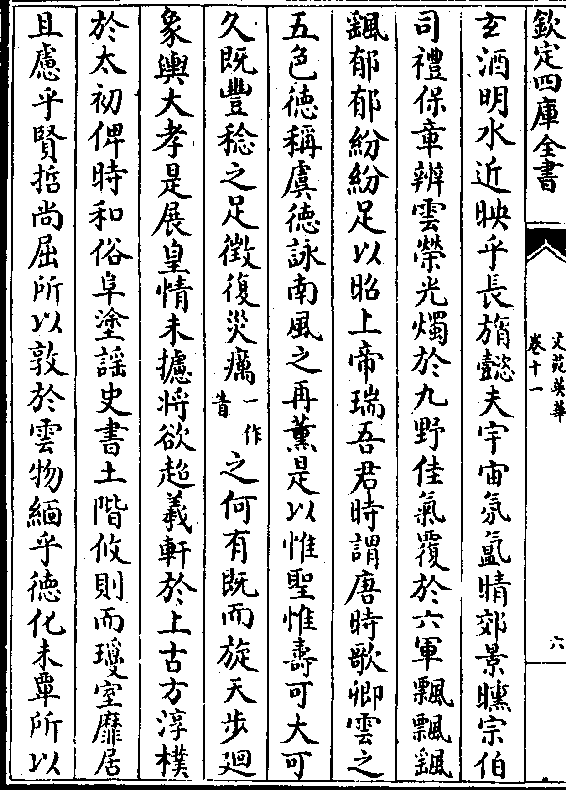 欽定四庫全書
文苑英華
卷十一
六
玄酒明水近映乎長旓懿夫宇宙氛氳晴郊景曛宗伯
司禮保章辨雲榮光燭於九野佳氣覆於六軍飄飄颻
颻郁郁紛紛足以昭上帝瑞吾君時謂唐時歌卿雲之
五色德稱虞德詠南風之再薰是以惟聖惟壽可大可
久既豐稔之足徵復災癘一作眚之何有既而旋天步迴
象輿大孝是展皇情未攄將欲超羲軒於上古方淳樸
於太初俾時和俗阜塗謡史書土階攸則而瓊室靡居
且慮乎賢哲尚屈所以敦於雲物緬乎德化未覃所以